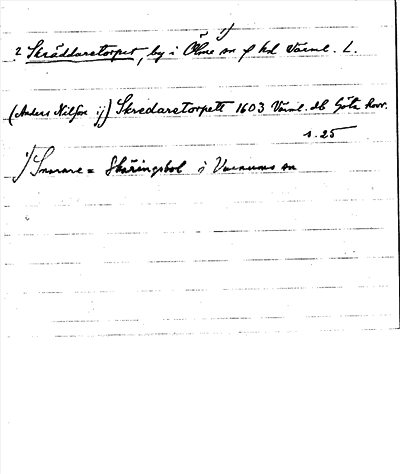 1)
? Skräddaretorpet, by i Ölme sn o hd Värml. L.
(Anders Nilsson ij) Skredaretorpett 1603 Värml. Göta
s. 25
1) Snarare = Skäringsbol i Varnums sn